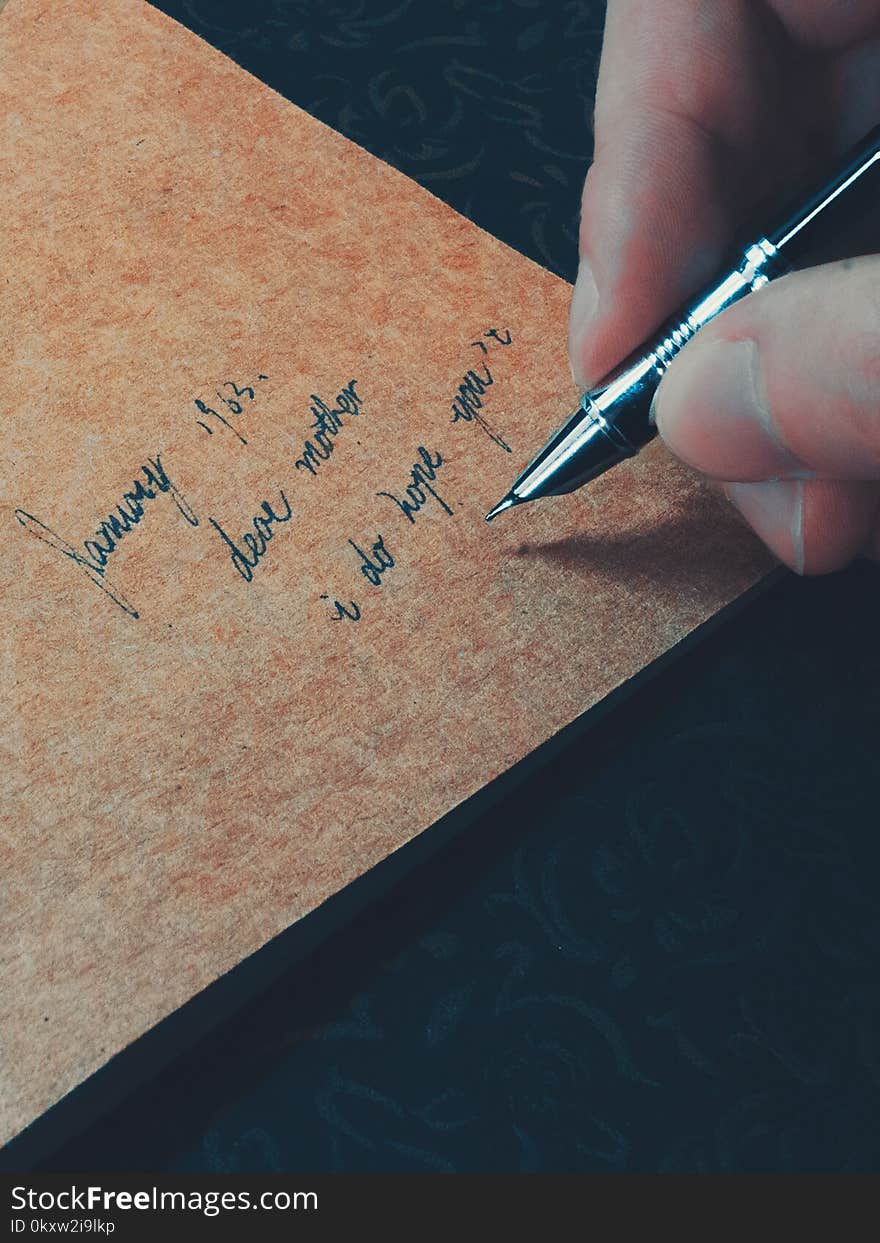 January 1963.
dear mother
i do hope you't
StockFreeImages.com
ID 0kxw2i9lkp